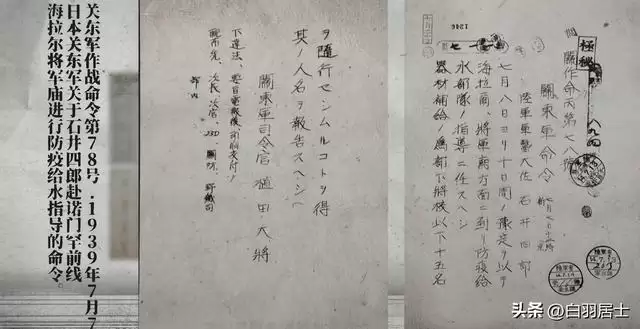 关东军作战命令第78号.1939年7月7
日本关东军关于石井四郎赴诺门罕前线
海拉尔将军庙进行防疫给水指导的命令
極秘
關作命丙第七八號
關東軍命令
陸軍軍醫大佐 石井四郎
七月八日ヨリ十日間ノ豫定ヲ以テ
海拉爾、將軍廟方面ニ到リ防疫給
水部隊ノ指導ニ任スヘシ
器材補給ノ為部下將校以下十五名
1246
ヲ隨行セシムルコトヲ得
其ノ人名ヲ報告スヘシ
關東軍司令官 植田大將
下達法、要旨電報後、印刷交付ス
配布先、次長、次官
头条 @白羽居士